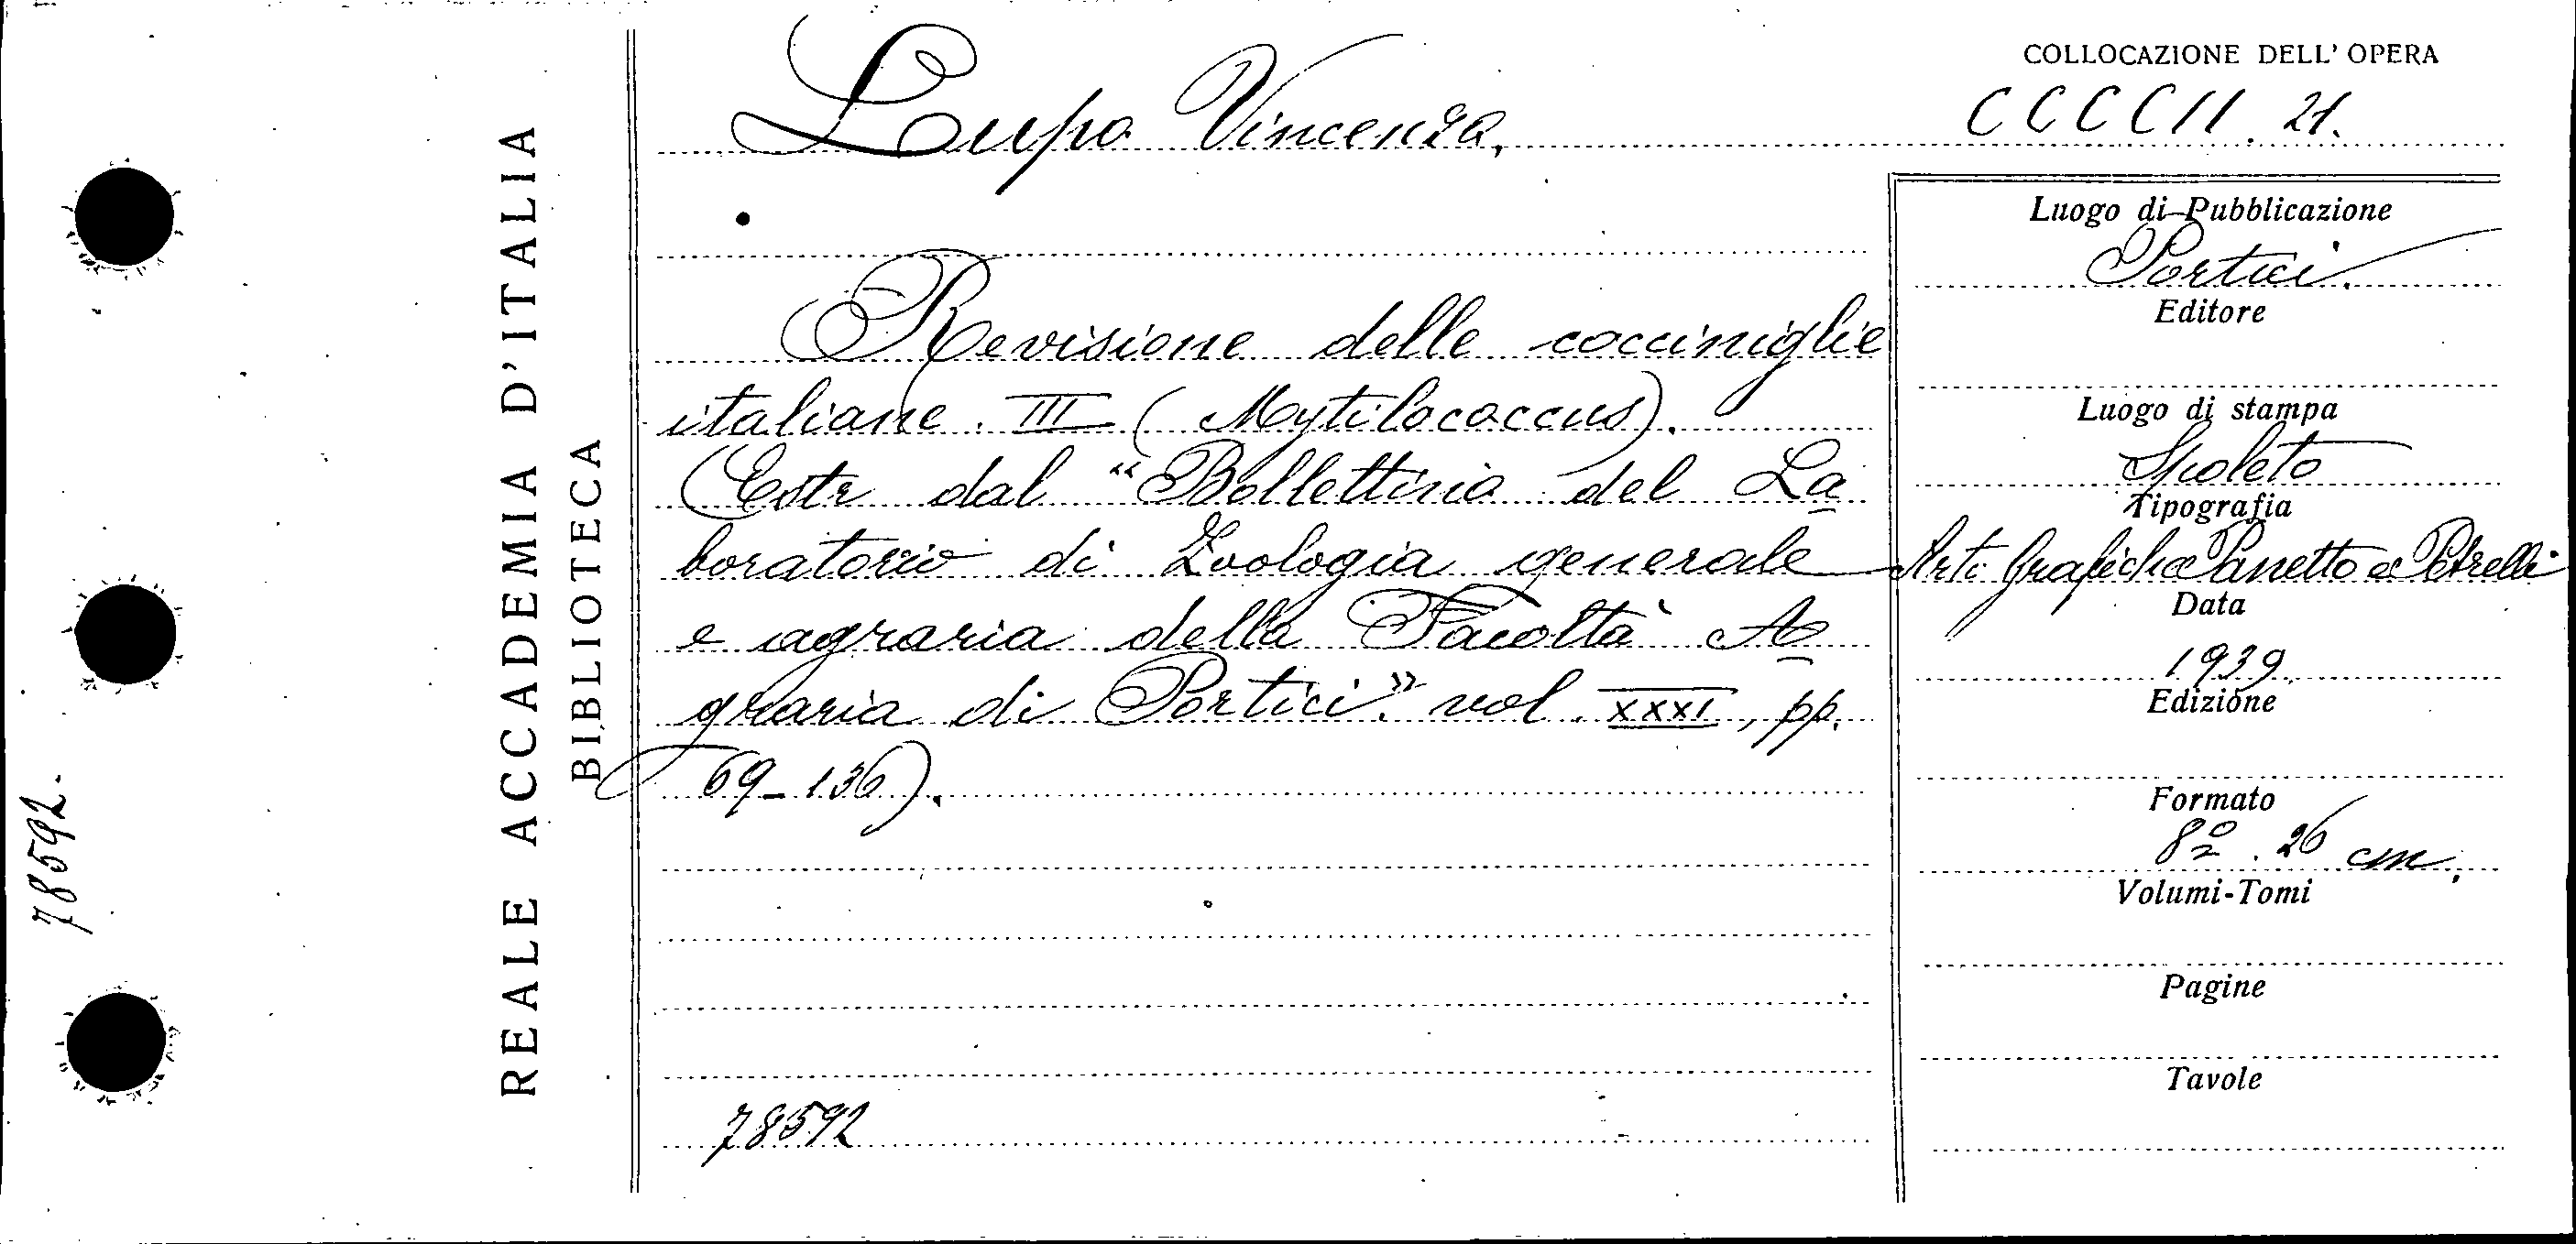 78592.
REALE ACCADEMIA D'ITALIA
BIBLIOTECA
Lupo Vincenza,
Revisione delle cocciniglie
italiane. III (Mytilococcus).
(Estr dal "Bollettino del La
boratorio di Zoologia generale
e agraria della Facoltà A
graria di Portici." vol. XXXI, pp.
69-136).
78592
COLLOCAZIONE DELL'OPERA
CCCCII. 21.
Luogo di Pubblicazione
Portici.
Editore
Luogo di stampa
Spoleto
Tipografia
Arti Grafiche Panetto e Petrelli
Data
1939.
Edizione
Formato
8º. 26 cm.
Volumi-Tomi
Pagine
Tavole